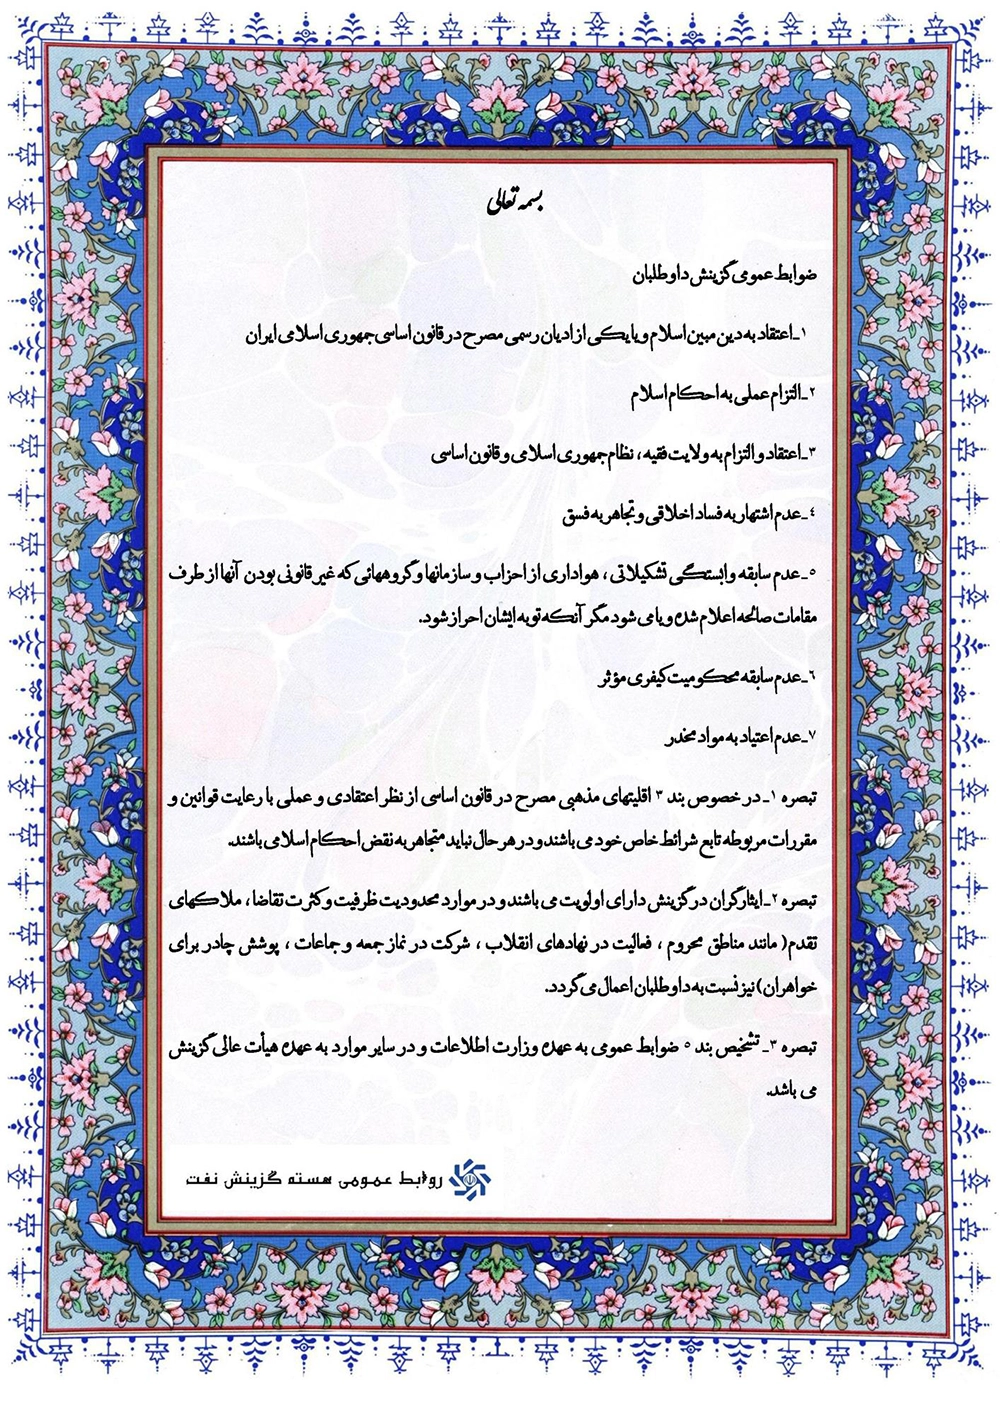 بسمه تعالی
ضوابط عمومی گزینش داوطلبان
۱ـ اعتقاد به دین مبین اسلام و یا یکی از ادیان رسمی مصرح در قانون اساسی جمهوری اسلامی ایران
۲ـ التزام عملی به احکام اسلام
۳ـ اعتقاد و التزام به ولایت فقیه ، نظام جمهوری اسلامی و قانون اساسی
٤ـ عدم اشتهار به فساد اخلاقی و تجاهر به فسق
٥ـ عدم سابقه وابستگی تشکیلاتی ، هواداری از احزاب و سازمانها و گروههائی که غیر قانونی بودن آنها از طرف
مقامات صالحه اعلام شده و یا می شود مگر آنکه توبه ایشان احراز شود.
٦ـ عدم سابقه محکومیت کیفری مؤثر
۷ـ عدم اعتیاد به مواد مخدر
تبصره ۱ـ در خصوص بند ۳ اقلیتهای مذهبی مصرح در قانون اساسی از نظر اعتقادی و عملی با رعایت قوانین و
مقررات مربوطه تابع شرائط خاص خود می باشند و در هر حال نباید متجاهر به نقض احکام اسلامی باشند.
تبصره ۲ـ ایثارگران در گزینش دارای اولویت می باشند و در موارد محدودیت ظرفیت و کثرت تقاضا ، ملاکهای
تقدم( مانند مناطق محروم ، فعالیت در نهادهای انقلاب ، شرکت در نماز جمعه و جماعات ، پوشش چادر برای
خواهران) نیز نسبت به داوطلبان اعمال می گردد.
تبصره ۳ـ تشخیص بند ٥ ضوابط عمومی به عهده وزارت اطلاعات و در سایر موارد به عهده هیأت عالی گزینش
می باشد.
روابط عمومی هسته گزینش نفت